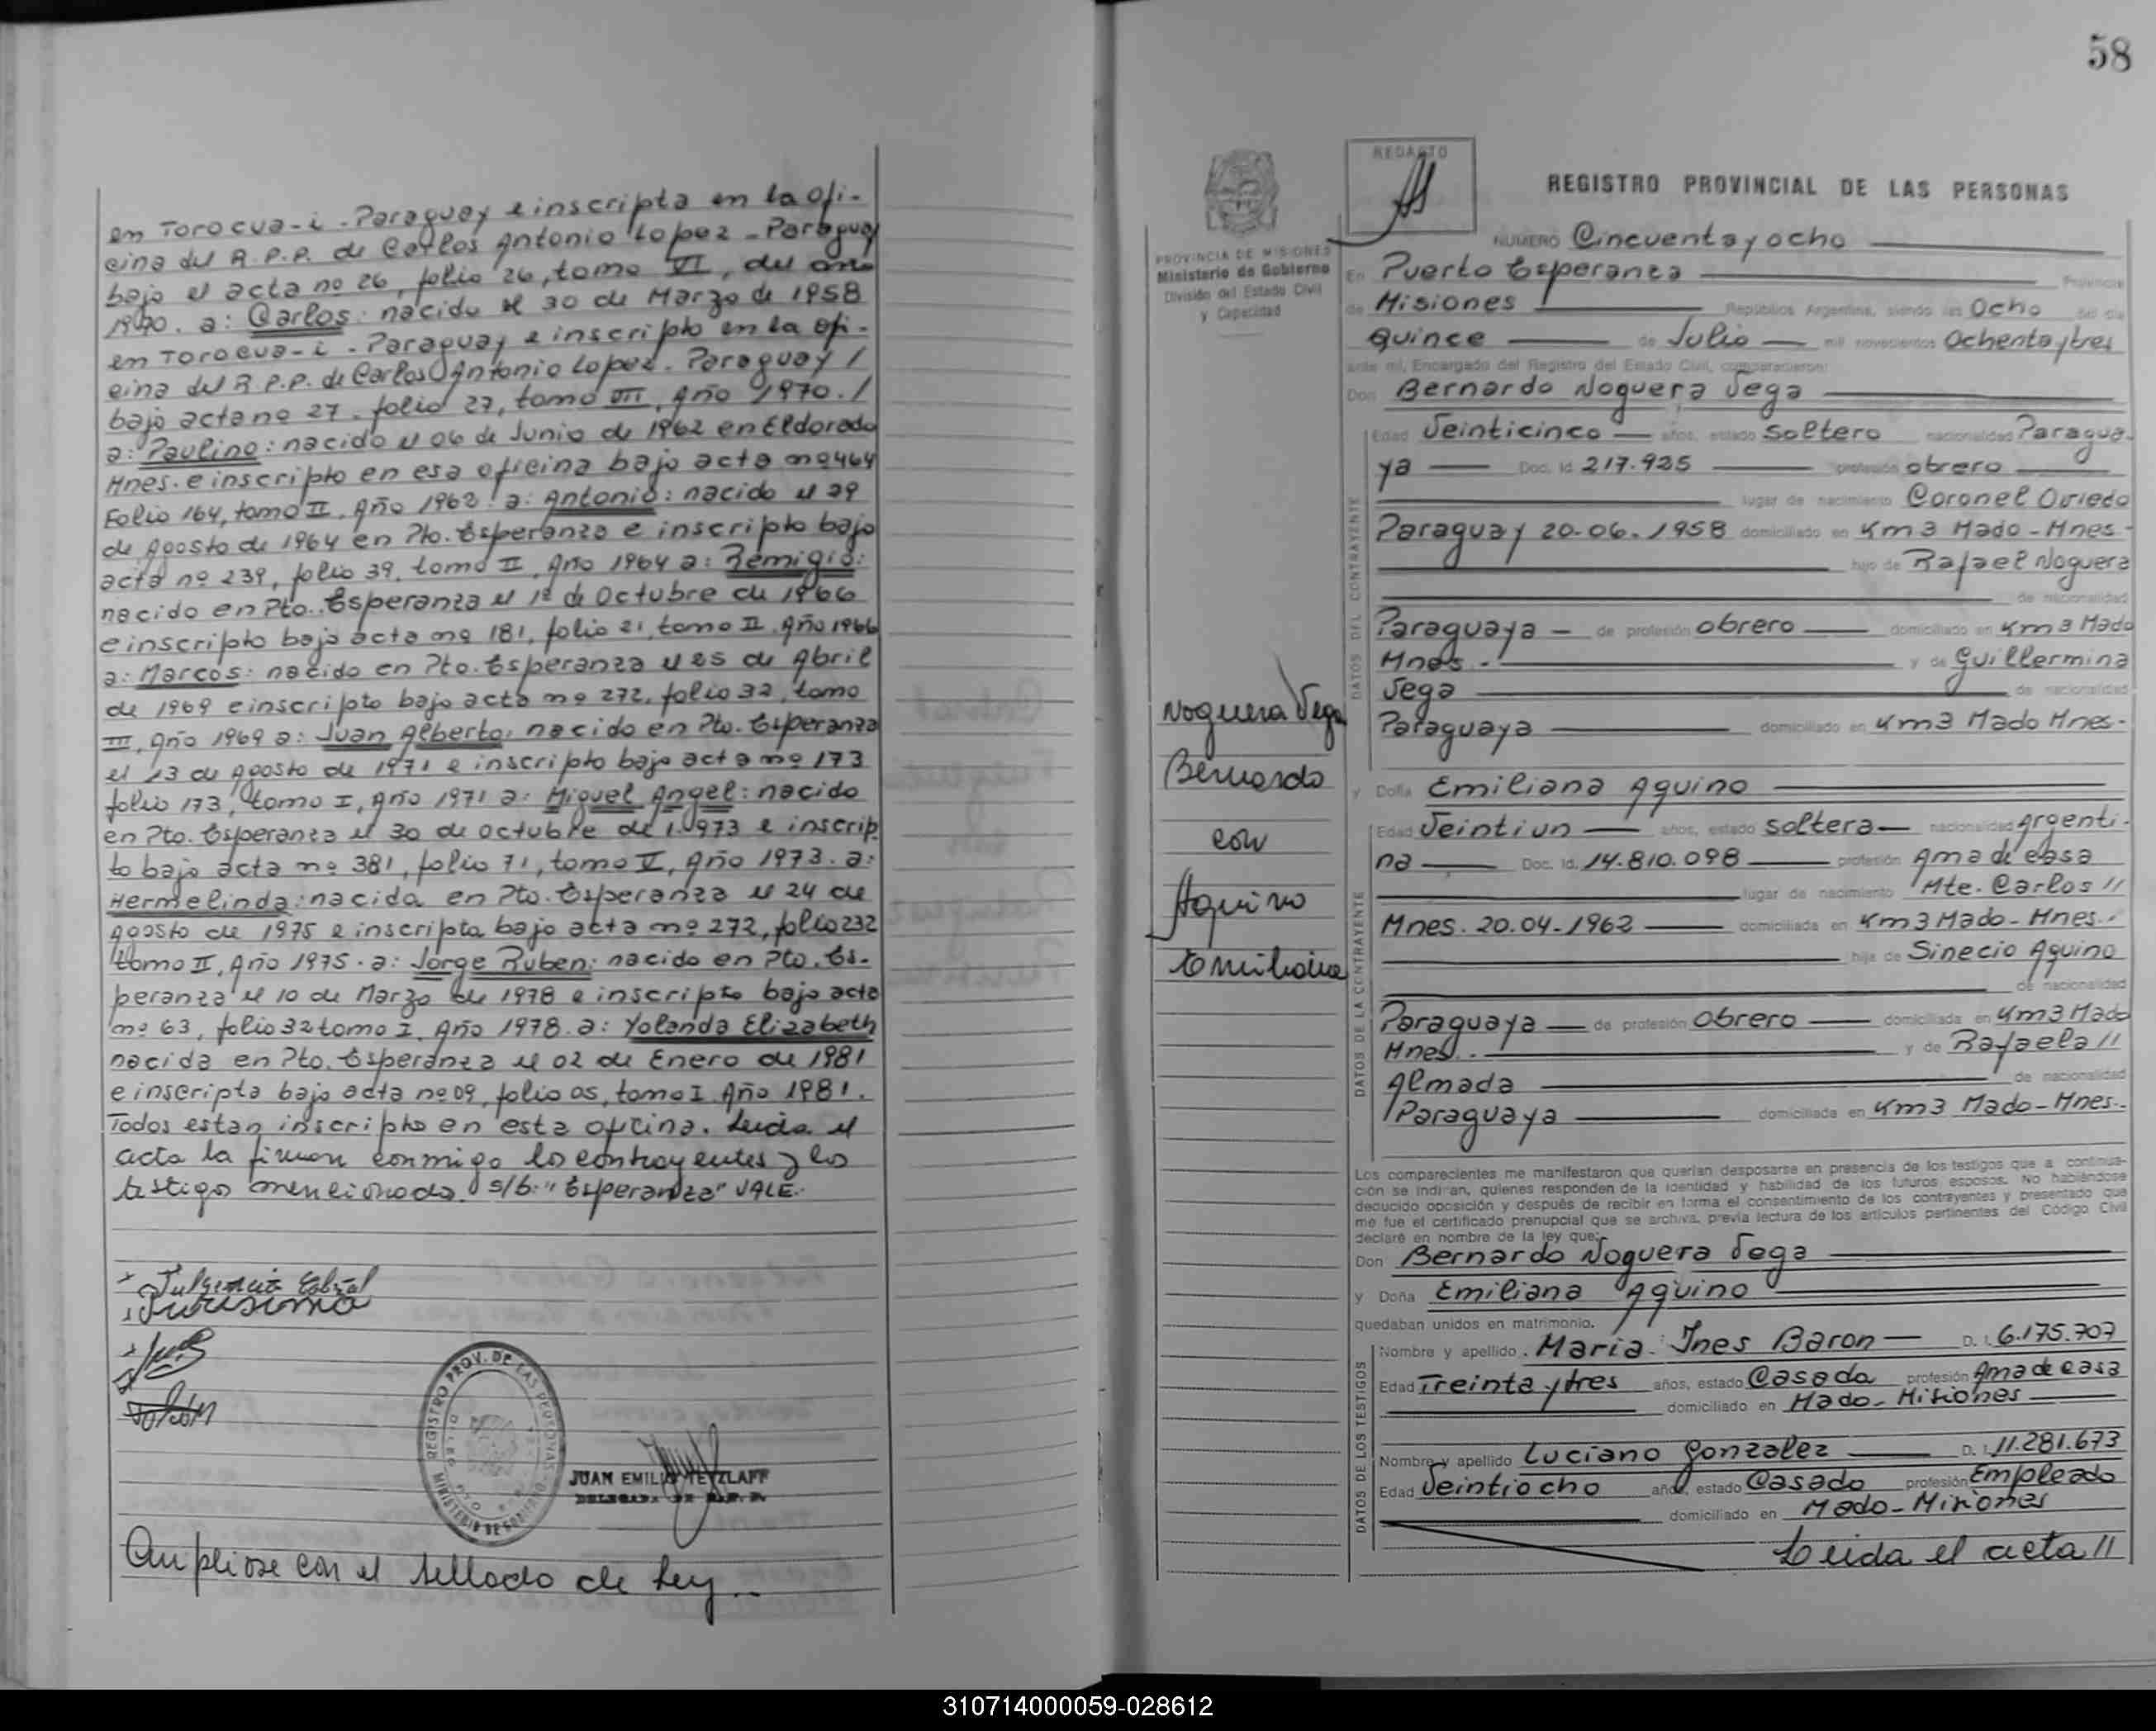 en Torocua-i - Paraguay e inscripta en la ofi-
cina del R.P.P. de Carlos Antonio Lopez - Paraguay
bajo el acta no 26, folio 26, tomo VI, del año
1970. a: Carlos: nacido el 30 de Marzo de 1958
en Torocua-i - Paraguay e inscripto en la ofi-
cina del R.P.P. de Carlos Antonio Lopez. Paraguay /
bajo acta no 27. folio 27, tomo VII, Año 1970. /
a: Paulino: nacido el 06 de Junio de 1962 en Eldorado
Mnes. e inscripto en esa oficina bajo acta no 464
Folio 164, tomo II, Año 1962. a: Antonio: nacido el 29
de Agosto de 1964 en Pto. Esperanza e inscripto bajo
acta no 239, folio 39, tomo II, Año 1964 a: Remigio:
nacido en Pto. Esperanza el 1º de Octubre de 1966
e inscripto bajo acta no 181, folio 21, tomo II. Año 1966
a: Marcos: nacido en Pto. Esperanza el 25 de Abril
de 1969 e inscripto bajo acta no 272, folio 32, tomo
III, Año 1969 a: Juan Alberto: nacido en Pto. Esperanza
el 13 de Agosto de 1971 e inscripto bajo acta no 173
folio 173, tomo I, Año 1971 a: Miguel Angel: nacido
en Pto. Esperanza el 30 de Octubre de 1.973 e inscrip
to bajo acta no 381, folio 71, tomo V, Año 1973. a:
Hermelinda: nacida en Pto. Esperanza el 24 de
Agosto de 1975 e inscripta bajo acta no 272, folio 232
tomo II, Año 1975. a: Jorge Ruben: nacido en Pto. Es-
peranza el 10 de Marzo de 1978 e inscripto bajo acta
no 63, folio 32 tomo I, Año 1978. a: Yolanda Elizabeth
nacida en Pto. Esperanza el 02 de Enero de 1981
e inscripta bajo acta no 09, folio 05, tomo I Año 1981.
Todos estan inscriptos en esta oficina. Leida el
acta la firman conmigo los contrayentes y los
testigos mencionados. s/b: "Esperanza" VALE.-
Fulgencio Cabral
REGISTRO PROV. DE LAS PERSONAS
MINISTERIO DE GOBIERNO
JUAN EMILIO TETZLAFF
DELEGADO DE R.P.P.
Ampliose con el sellado de Ley.-
58
PROVINCIA DE MISIONES
Ministerio de Gobierno
División del Estado Civil
y Capacidad
REDACTO
REGISTRO PROVINCIAL DE LAS PERSONAS
NUMERO Cincuenta y ocho
En Puerto Esperanza Provincia
de Misiones República Argentina, siendo las Ocho del día
Quince de Julio mil novecientos Ochenta y tres
ante mí, Encargado del Registro del Estado Civil, comparecieron:
Don Bernardo Noguera Vega
DATOS DEL CONTRAYENTE
Edad Veinticinco años, estado Soltero nacionalidad Paragua-
ya Doc. Id 217.925 profesión obrero
lugar de nacimiento Coronel Oviedo
Paraguay 20-06-1958 domiciliado en Km 3 Mado - Mnes-
hijo de Rafael Noguera
de nacionalidad
Paraguaya - de profesión obrero domiciliado en Km 3 Mado
Mnes.- y de Guillermina
Vega de nacionalidad
Paraguaya domiciliado en Km3 Mado Mnes-
Noguera Vega
Bernardo
con
Aquino
Emiliana
y Doña Emiliana Aquino
DATOS DE LA CONTRAYENTE
Edad Veintiun años, estado soltera nacionalidad Argenti-
na Doc. Id. 14.810.098 profesión Ama de casa
lugar de nacimiento Mte. Carlos //
Mnes. 20.04-1962 domiciliada en Km3 Mado-Mnes.-
hija de Sinecio Aquino
de nacionalidad
Paraguaya de profesión Obrero domiciliada en Km3 Mado
Mnes.- y de Rafaela //
Almada de nacionalidad
Paraguaya domiciliada en Km3 Mado-Mnes.-
Los comparecientes me manifestaron que querían desposarse en presencia de los testigos que a continua-
ción se indican, quienes responden de la identidad y habilidad de los futuros esposos. No habiéndose
deducido oposición y después de recibir en forma el consentimiento de los contrayentes y presentado que
me fue el certificado prenupcial que se archiva, previa lectura de los artículos pertinentes del Código Civil
declaré en nombre de la ley que:
Don Bernardo Noguera Vega
y Doña Emiliana Aquino
quedaban unidos en matrimonio.
DATOS DE LOS TESTIGOS
Nombre y apellido Maria Ines Baron D. I. 6.175.707
Edad Treinta y tres años, estado Casada profesión Ama de casa
domiciliado en Mado - Misiones
Nombre y apellido Luciano Gonzalez D. I. 11.281.673
Edad Veintiocho años, estado Casado profesión Empleado
domiciliado en Mado-Misiones
Leida el acta //
310714000059-028612